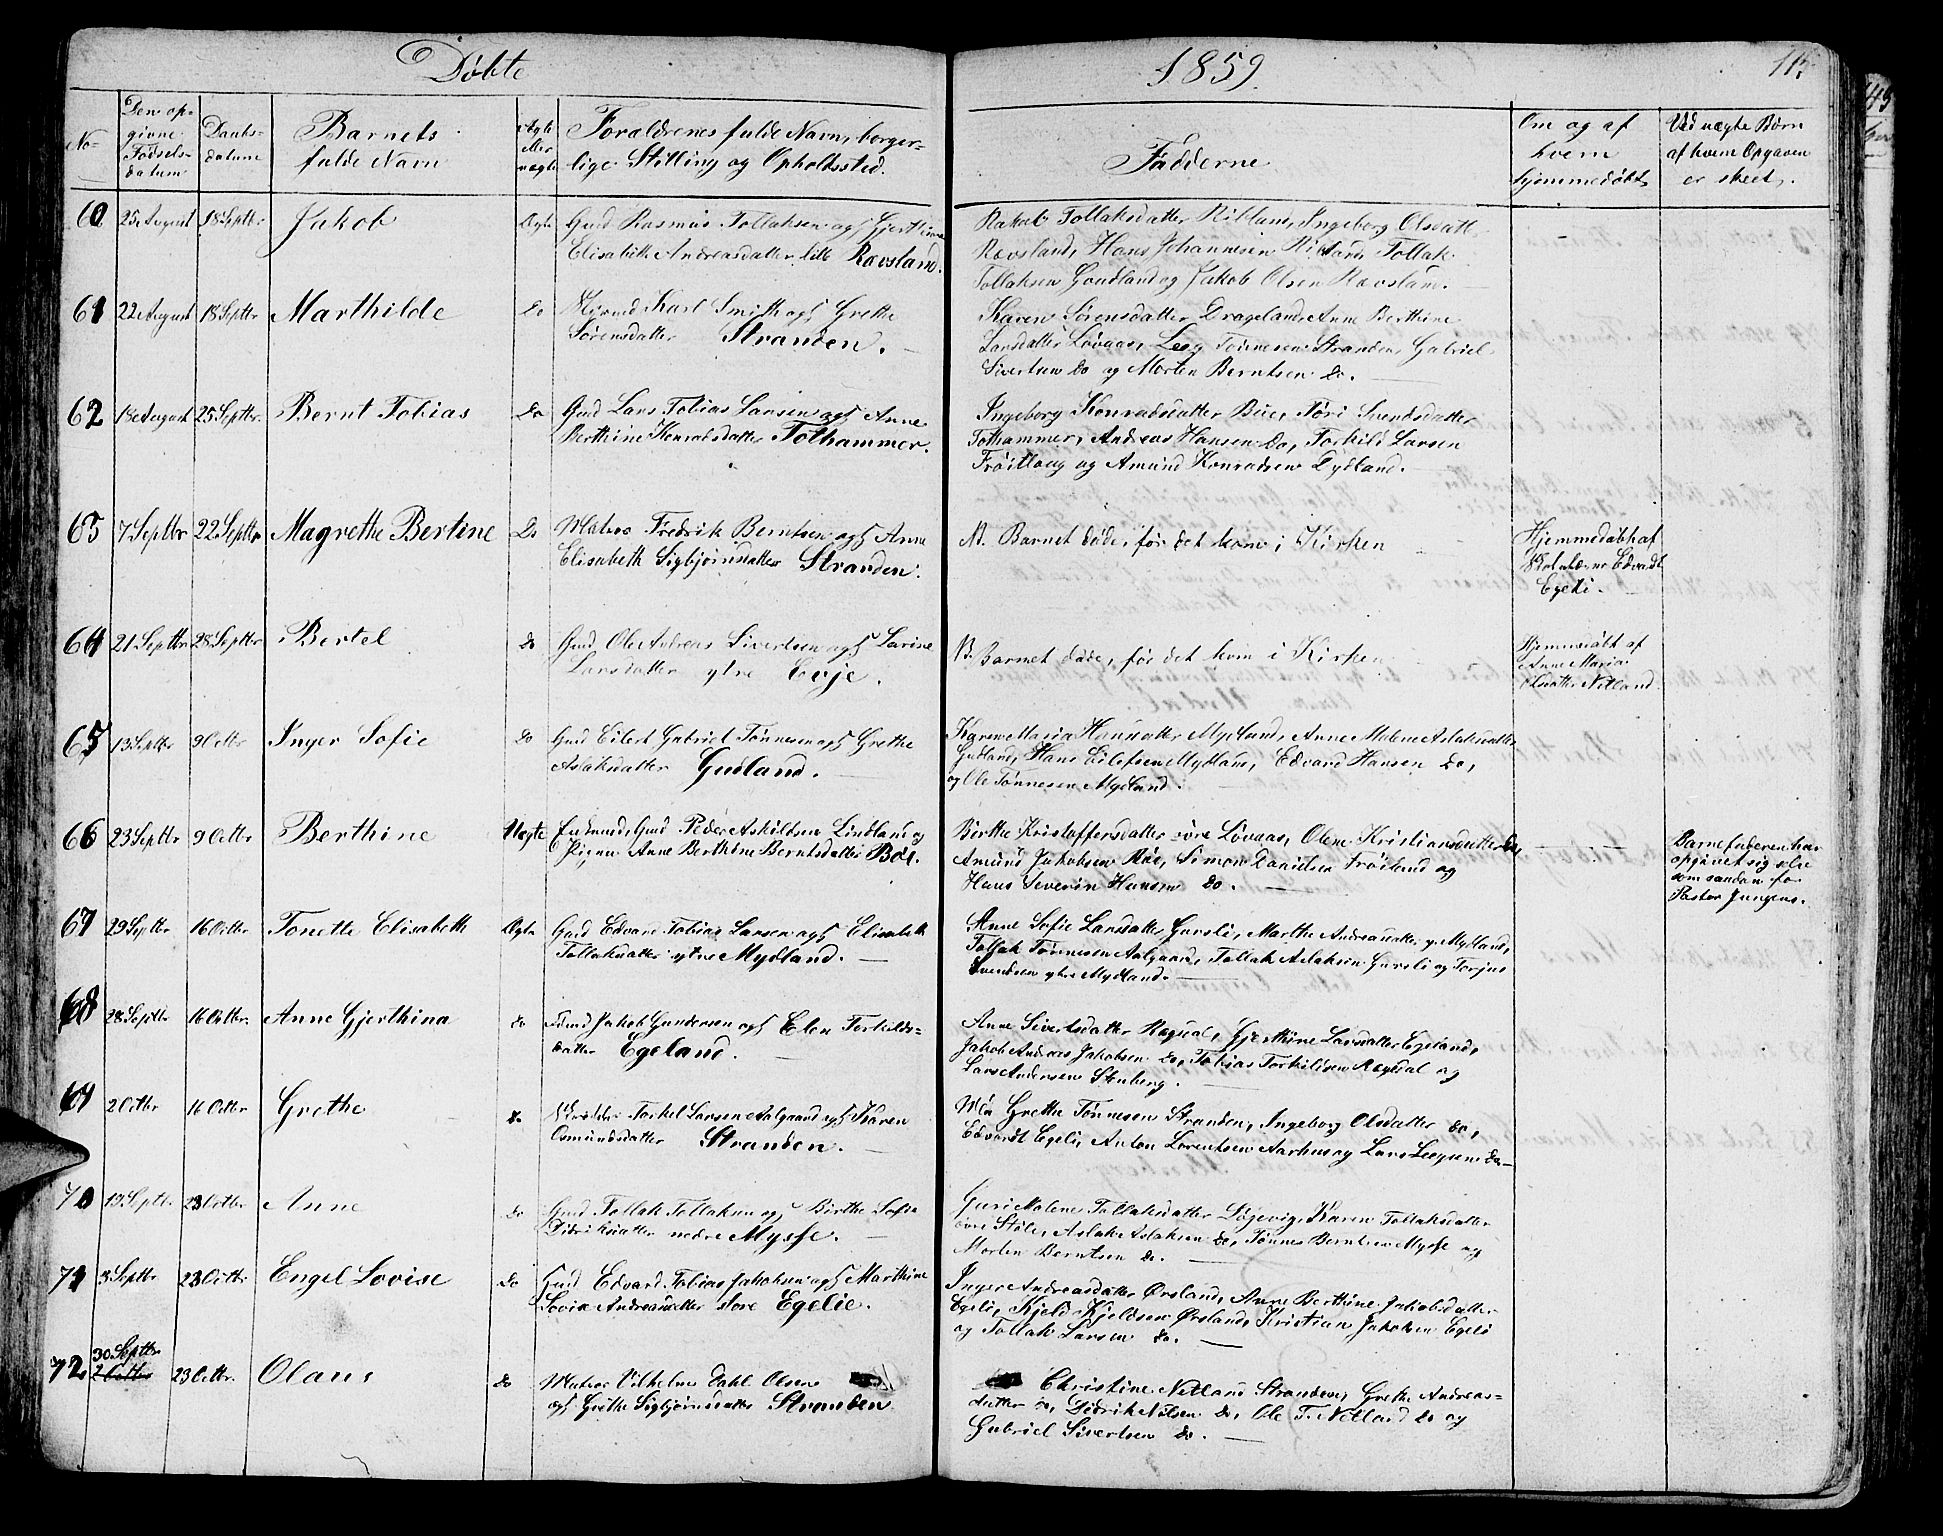 Døbte
1859.
No
Den opgivne Fødselsdatum
Daabsdatum
Barnets fulde Navn
Ægte eller uægte
Forældrenes fulde Navn, borgerlige Stilling og Opholdssted.
Fadderne
Om og af hvem hjemmedøbt
Ved uægte Børn af hvem Opgaven er skeet.
60 25 August 18 Septbr Jakob Ægte Gmd Rasmus Tollaksen og H Gjerthine
Elisabeth Andreasdatter lille Ravsland.
Rakel Tollaksdatter Ribland, Ingeborg Olsdatt.
Ravsland, Hans Johannesen Ribland, Tollak
Tollaksen Goudland og Jakob Olsen Ravsland.
61 22 August 18 Septbr Marthilde Do Karl Smith og H Grethe
Sørensdatter Stranden.
Karen Sørensdatter Drageland, Anne Berthine
Larsdatter Løvaas, Tønnesen Stranden, Gabriel
Sivertsen Do og Morten Berntsen Do.
62 18 August 25 Septbr. Bernt Tobias Do Gmd Lars Tobias Larsen og H Anne
Berthine Konradsdatter Tothammer.
Ingeborg Konradsdatter Bue, Tøri Svendsdatter
Tothammer, Andreas Hansen Do, Torkild Larsen
Frøitlaug og Amund Konradsen Dydland.
63 7 Septbr 22 Septbr Magrethe Bertine Do Matros Fredrik Berntsen og H Anne
Elisabeth Sigbjørnsdatter Stranden.
N. Barnet døde, før det kom i Kirken
Hjemmedøbt af
Skolelærer Edvardt
Egeli.
64 21 Septbr 28 Septbr Bertel Do Gmd Ole Andreas Sivertsen og H Larine
Larsdatter ytre Evje.
N. Barnet døde, før det kom i Kirken
Hjemmedøbt af
Anne Maria
Olsdatter Netland.
65 13 Septbr 9 Octbr Inger Sofie Do Gmd Eilert Gabriel Tønnesen og H Grethe
Aslaksdatter Gudland.
Karen Maria Hansdatter Mydland, Anne Malene Aslaksdatter
Gudland, Hans Eilefsen Mydland, Edvard Hansen Do,
og Ole Tønnesen Mydland.
66 23 Septbr 9 Octbr Berthine Uægte Enkmd, Gmd Peder Askildsen Lindland og
Pigen Anne Berthine Berntsdatter Bøe.
Berthe Kristoffersdatter øvre Løvaas, Olene Kristiansdatter Do,
Amund Jakobsen Røe, Simon Danielsen Frøitland og
Hans Severin Hansen Do.
Barnefaderen har
opgivet sig selv
som saadan for
Pastor Jungens.
67 29 Septbr 16 Octbr Tonette Elisabeth Ægte Gmd Edvard Tobias Larsen og H Elisabeth
Tollaksdatter ytre Mydland.
Anne Sofie Larsdatter Gursli, Marthe Andreasdatter y. Mydland,
Tollak Tønnesen Aalgaard, Tollak Aslaksen Gursli og Torjus
Svendsen ytre Mydland.
68 28 Septbr 16 Octbr. Anne Gjerthina do Gmd Jakob Gundersen og H Elen Torkilds-
datter Egeland.
Anne Sivertsdatter Regedal, Gjerthine Larsdatter Egeland,
Jakob Andreas Jakobsen do, Tobias Torkildsen Regedal og
Lars Andersen Stenberg.
69 2 Octbr 16 Octbr Grethe do Skrædder Torkel Larsen Aalgaard og H Karen
Osmundsdatter Stranden.
Mdm Grethe Tønnesen Stranden, Ingeborg Olsdatter do,
Edvardt Egeli, Anton Lorentsen Aarhus og Lars Leegsen do
70 19 Septbr. 23 Octbr Anne Do Gmd Tollak Tollaksen og H Birthe Sofie
Didriksdatter nedre Mysse.
Guri Malene Tollaksdatter Løgevig, Karen Tollaksdatter
øvre Støle, Aslak Aslaksen do, Tønnes Berntsen Mysse og
Morten Berntsen do.
71 3 Septbr 23 Octbr. Engel Lovise Do Gmd Edvard Tobias Jakobsen og H Marthine
Lovise Andreasdatter store Egelie.
Inger Andreasdatter Ørsland, Anne Berthine Jakobsdatter
Egeli, Kjeld Kjeldsen Ørsland, Kristian Jakobsen Egeli
og Tollak Larsen do.
72 30 Septbr 2 Octbr 23 Octbr. Olaus Do Matros Vilhelm Dahl Olsen
og H Grethe Sigbjørnsdatter Stranden
Christine Netland Stranden, Grethe Andreas-
datter do, Didrik Nilsen do, Ole T. Netland do og
Gabriel Sivertsen do.